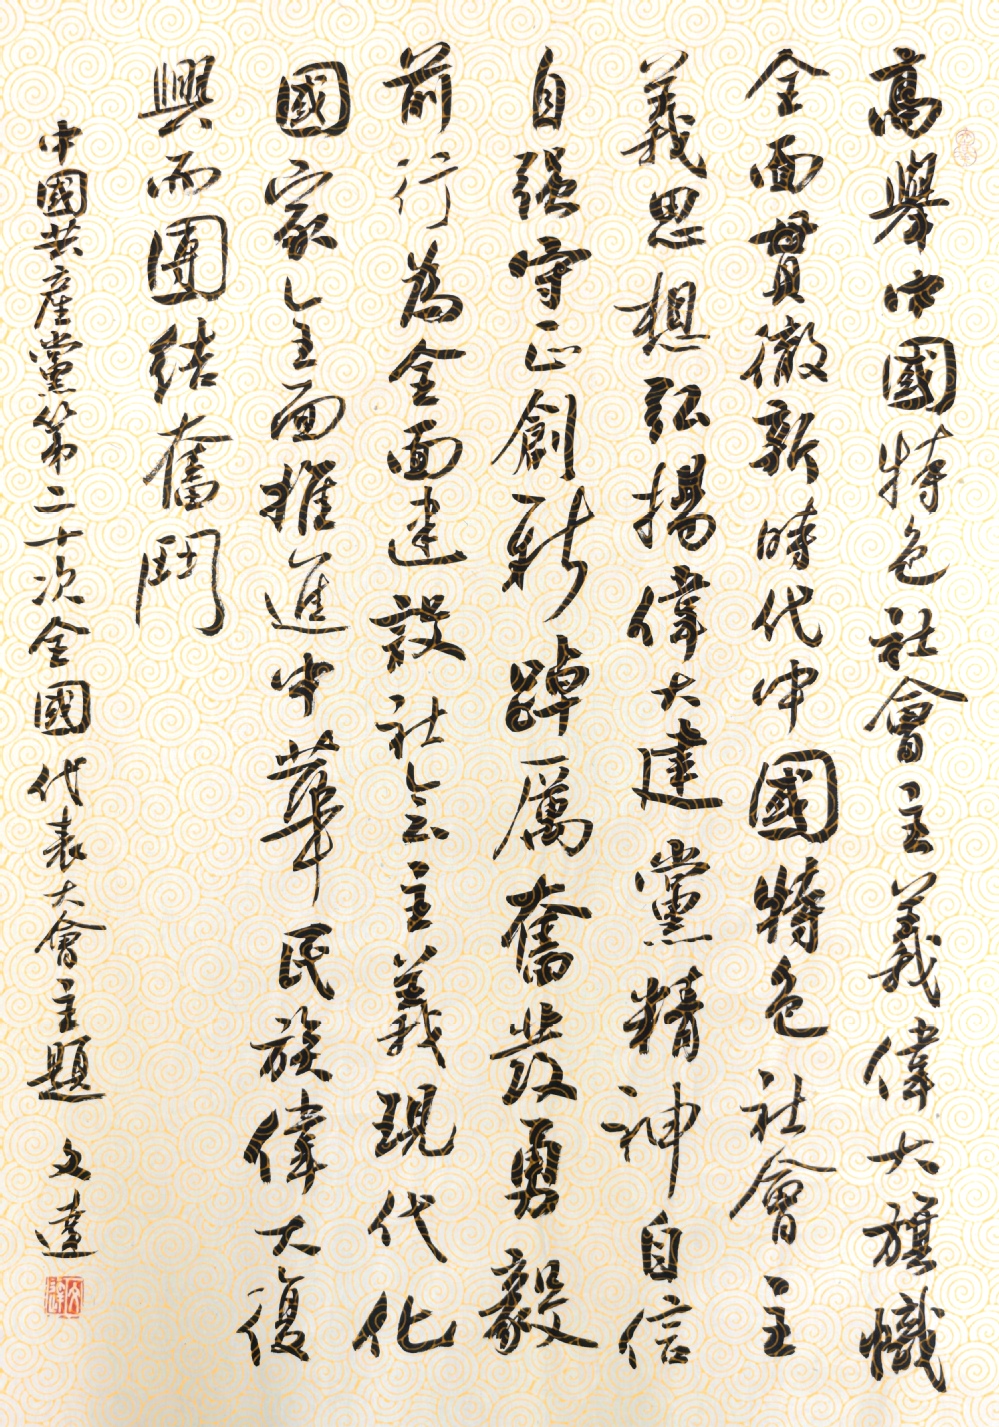 高舉中國特色社會主義偉大旗幟
全面貫徹新時代中國特色社會主
義思想弘揚偉大建黨精神自信
自強守正創新踔厲奮發勇毅
前行為全面建設社会主義現代化
國家全面推進中華民族偉大復
興而團結奮鬥
中國共產黨第二十次全國代表大會主題 文達